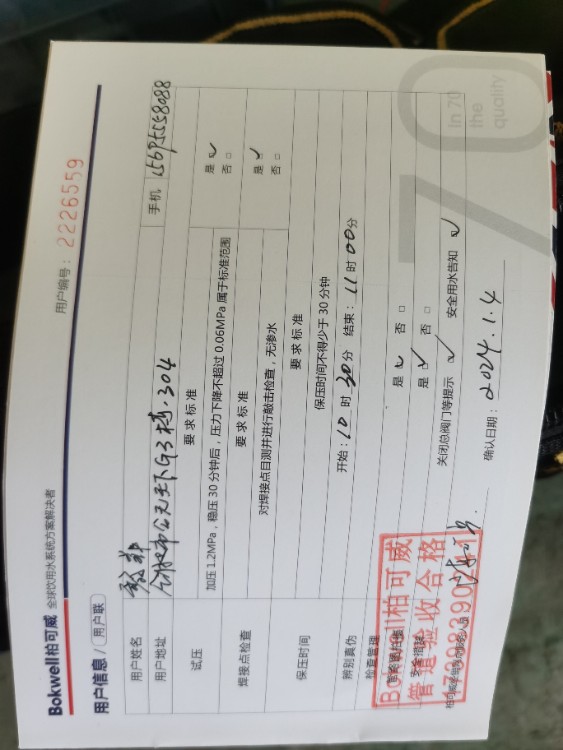 Bokwell柏可威 全球饮用水系统方案解决者
用户信息 / 用户联
用户编号：2226559
用户姓名
手机 15695558088
用户地址 G3栋.304
试压
要求标准
加压1.2MPa，稳压30分钟后，压力下降不超过0.06MPa属于标准范围
是 ☑
否 □
焊接点检查
要求标准
对焊接点目测并进行敲击检查，无渗水
是 ☑
否 □
保压时间
要求标准
保压时间不得少于30分钟
开始：10时30分 结束：11时00分
辨别真伪
是 ☑ 否 □
检查管理
是 ☑ 否 □
安全措施
关闭总阀门等提示 ☑ 安全用水告知 ☑
确认日期：2024.1.4
Bokwell柏可威
管道验收合格
70
In 70
the
quality